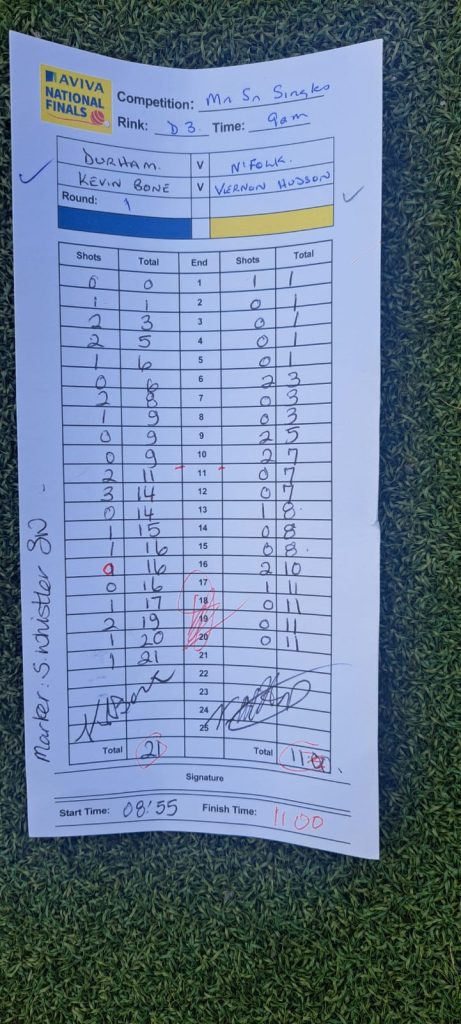 AVIVA
NATIONAL
FINALS
Competition: Mn Sn Singles
Rink: D3 Time: 9am
DURHAM. V N'FOLK.
KEVIN BONE V VERNON HUDSON
Round: 1
Shots Total End Shots Total
0 0 1 1 1
1 1 2 0 1
2 3 3 0 1
2 5 4 0 1
1 6 5 0 1
0 6 2 3
2 8 7 0 3
1 9 8 0 3
0 9 9 2 5
0 9 10 2 7
2 11 11 0 7
3 14 12 0 7
0 14 13 1 8
1 15 14 0 8
1 16 15 0 8
0 16 16 2 10
0 16 17 1 11
1 17 18 0 11
2 19 19 0 11
1 20 20 0 11
1 21 21
22
23
24
25
Total 21 Total 11
Signature
Start Time: 08:55 Finish Time: 11:00
Marker: S. Whistler